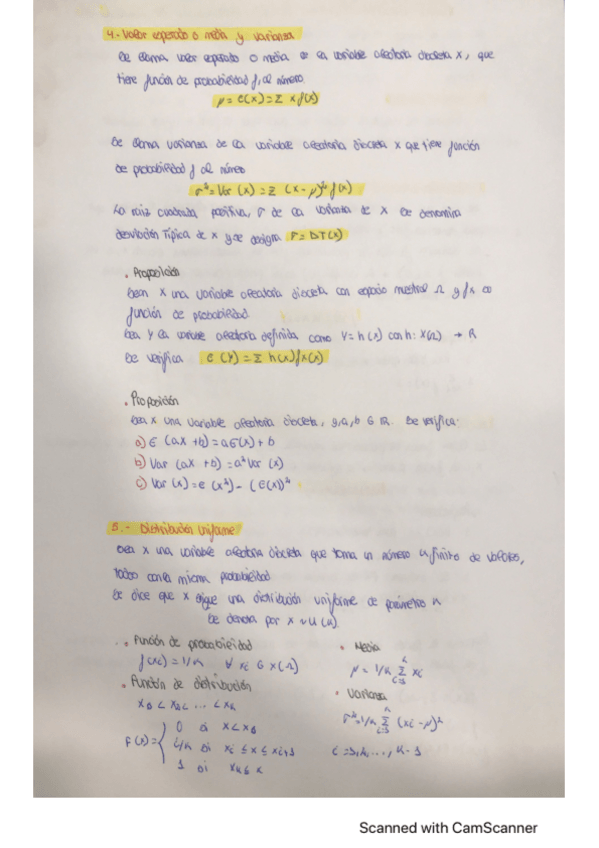 4.- Valor esperado o media y varianza
Se llama valor esperado o media de la variable aleatoria discreta X, que
tiene función de probabilidad f, al número
μ = E(X) = Σ x f(x)
Se llama varianza de la variable aleatoria discreta X que tiene función
de probabilidad f al número
σ² = Var (X) = Σ (x - μ)² f(x)
La raíz cuadrada positiva, σ de la varianza de X se denomina
desviación Típica de X y se designa σ = DT(X)
• Proposición
Sean X una variable aleatoria discreta con espacio muestral Ω y fx su
función de probabilidad.
Sea Y la variable aleatoria definida como Y = h(x) con h: X(Ω) → R
Se verifica E (Y) = Σ h(x) fx(x)
• Proposición
Sea X una variable aleatoria discreta, y a, b ∈ R. Se verifica:
a) E (aX + b) = aE(X) + b
b) Var (aX + b) = a² Var (X)
c) Var (X) = E (X²) - (E(X))²
5.- Distribución uniforme
Sea X una variable aleatoria discreta que toma un número finito de valores,
todos con la misma probabilidad
Se dice que X sigue una distribución uniforme de parámetros n
Se denota por X ~ U (n).
• Función de probabilidad
f(xi) = 1/n ∀ xi ∈ X(Ω)
• Media
μ = 1/n Σ xi
• Función de distribución
x1 < x2 < ... < xn
F(x) = { 0 si x < x1
i/n si xi ≤ x ≤ xi+1
1 si xn ≤ x
• Varianza
σ² = 1/n Σ (xi - μ)²
i = 1, 2, ..., n - 1
Scanned with CamScanner